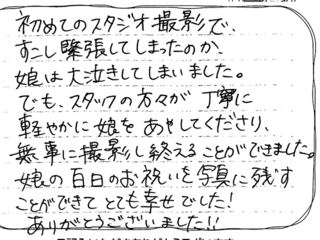 初めてのスタジオ撮影で、
すこし緊張してしまったのか、
娘は大泣きしてしまいました。
でも、スタッフの方々が丁寧に
軽やかに娘をあやしてくださり、
無事に撮影し終えることができました。
娘の百日のお祝いを写真に残す
ことができてとても幸せでした!
ありがとうございました!!